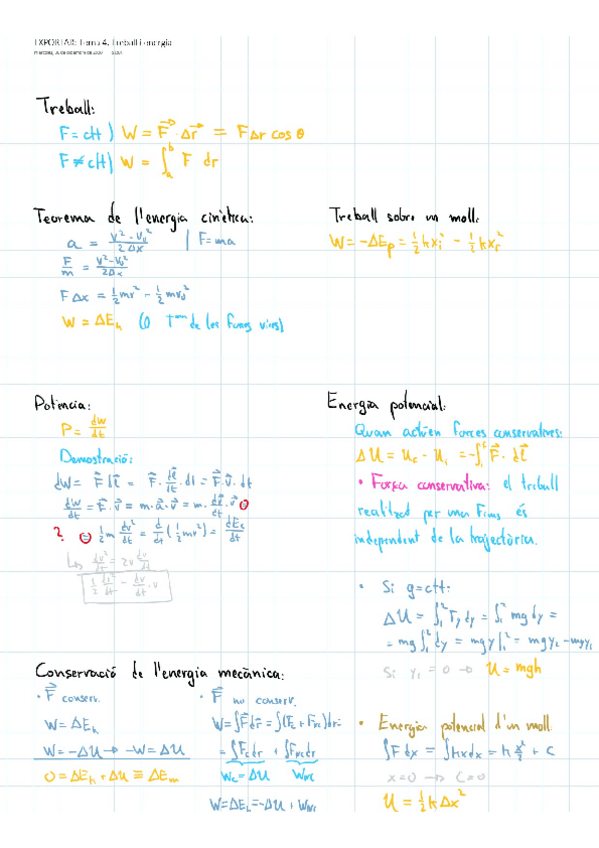 EXPORTAR: Tema 4. Treball i energia
Treball:
F=ctt) W = F⃗ · Δr⃗ = FΔr cos θ
F≠ctt) W = ∫ₐᵇ F dr
Teorema de l'energia cinètica:
a = (v² - v₀²)/(2Δx) | F=ma
F/m = (v² - v₀²)/(2Δx)
FΔx = ½mv² - ½mv₀²
W = ΔEₖ (O Tᵐᵃ de les forces vives)
Treball sobre un moll:
W = -ΔEₚ = ½kxᵢ² - ½kx_f²
Potència:
P = dW/dt
Demostració:
dW = F⃗ dl⃗ = F⃗ · dl⃗/dt · dt = F⃗ · v⃗ · dt
dW/dt = F⃗ · v⃗ = m · a⃗ · v⃗ = m · dv⃗/dt · v⃗
? = ½m dv²/dt = d/dt (½mv²) = dEc/dt
↳ dv²/dt = 2v dv/dt
½ dv²/dt = dv/dt · v
Energia potencial:
Quan actúen forces conservatives:
ΔU = U_f - Uᵢ = -∫ᵢᶠ F⃗ · dl⃗
• Força conservativa: el treball
realitzat per una és
independent de la trajectòria.
• Si g=ctt:
ΔU = ∫₁² dy = ∫₁² mg dy =
= mg ∫₁² dy = mgy|₁² = mgy₂ - mgy₁
Si y₁ = 0 → U = mgh
• Energia potencial d'un moll
∫F dx = ∫kx dx = k x²/2 + C
x=0 → C=0
U = ½kΔx²
Conservació de l'energia mecànica:
• F⃗ conserv.
W = ΔEₖ
W = -ΔU → -W = ΔU
0 = ΔEₖ + ΔU ≡ ΔEₘ
• F⃗ no conserv.
W = ∫F⃗dr⃗ = ∫(F_c + F_NC)dr =
= ∫F_c dr + ∫F_NC dr
W_c = ΔU W_NC
W = ΔEₖ = -ΔU + W_NC